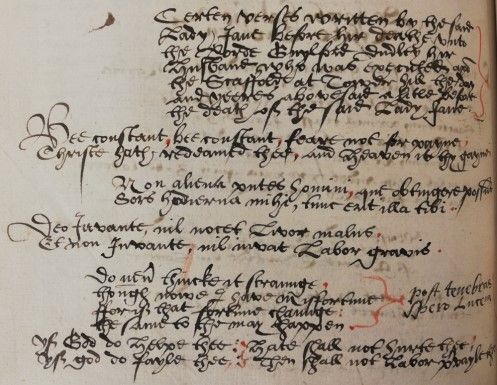 Certen verses written by the said
Lady Jane before hir deathe unto
the Lorde Guylford Dudley hir
Husband who was executed upon
the Scaffolde at Tower hill the day
and yeere abovesaid a litle before
the death of the said Lady Jane
Bee constant, bee constant, feare not for payne
Christe hath redeamed thee, and heaven is thy gayne
Non aliena putes homini, que obtingere possunt
Sors hodierna mihi, tunc erit illa tibi
Deo Juvante, nil nocet Livor malus
Et non Juvante, nil iuvat Labor gravis
Do never thincke it straunge
though nowe I have misfortune
For if that fortune chaunge
the same to the may happen
post tenebras
spero Lucem
yf God do helpe thee : Hate shall not hurte thee
yf god do fayle thee : Then shall not Labor prevayle